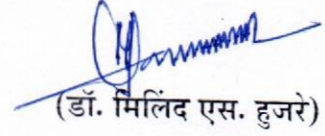 (डॉ. मिलिंद एस. हुजरे)